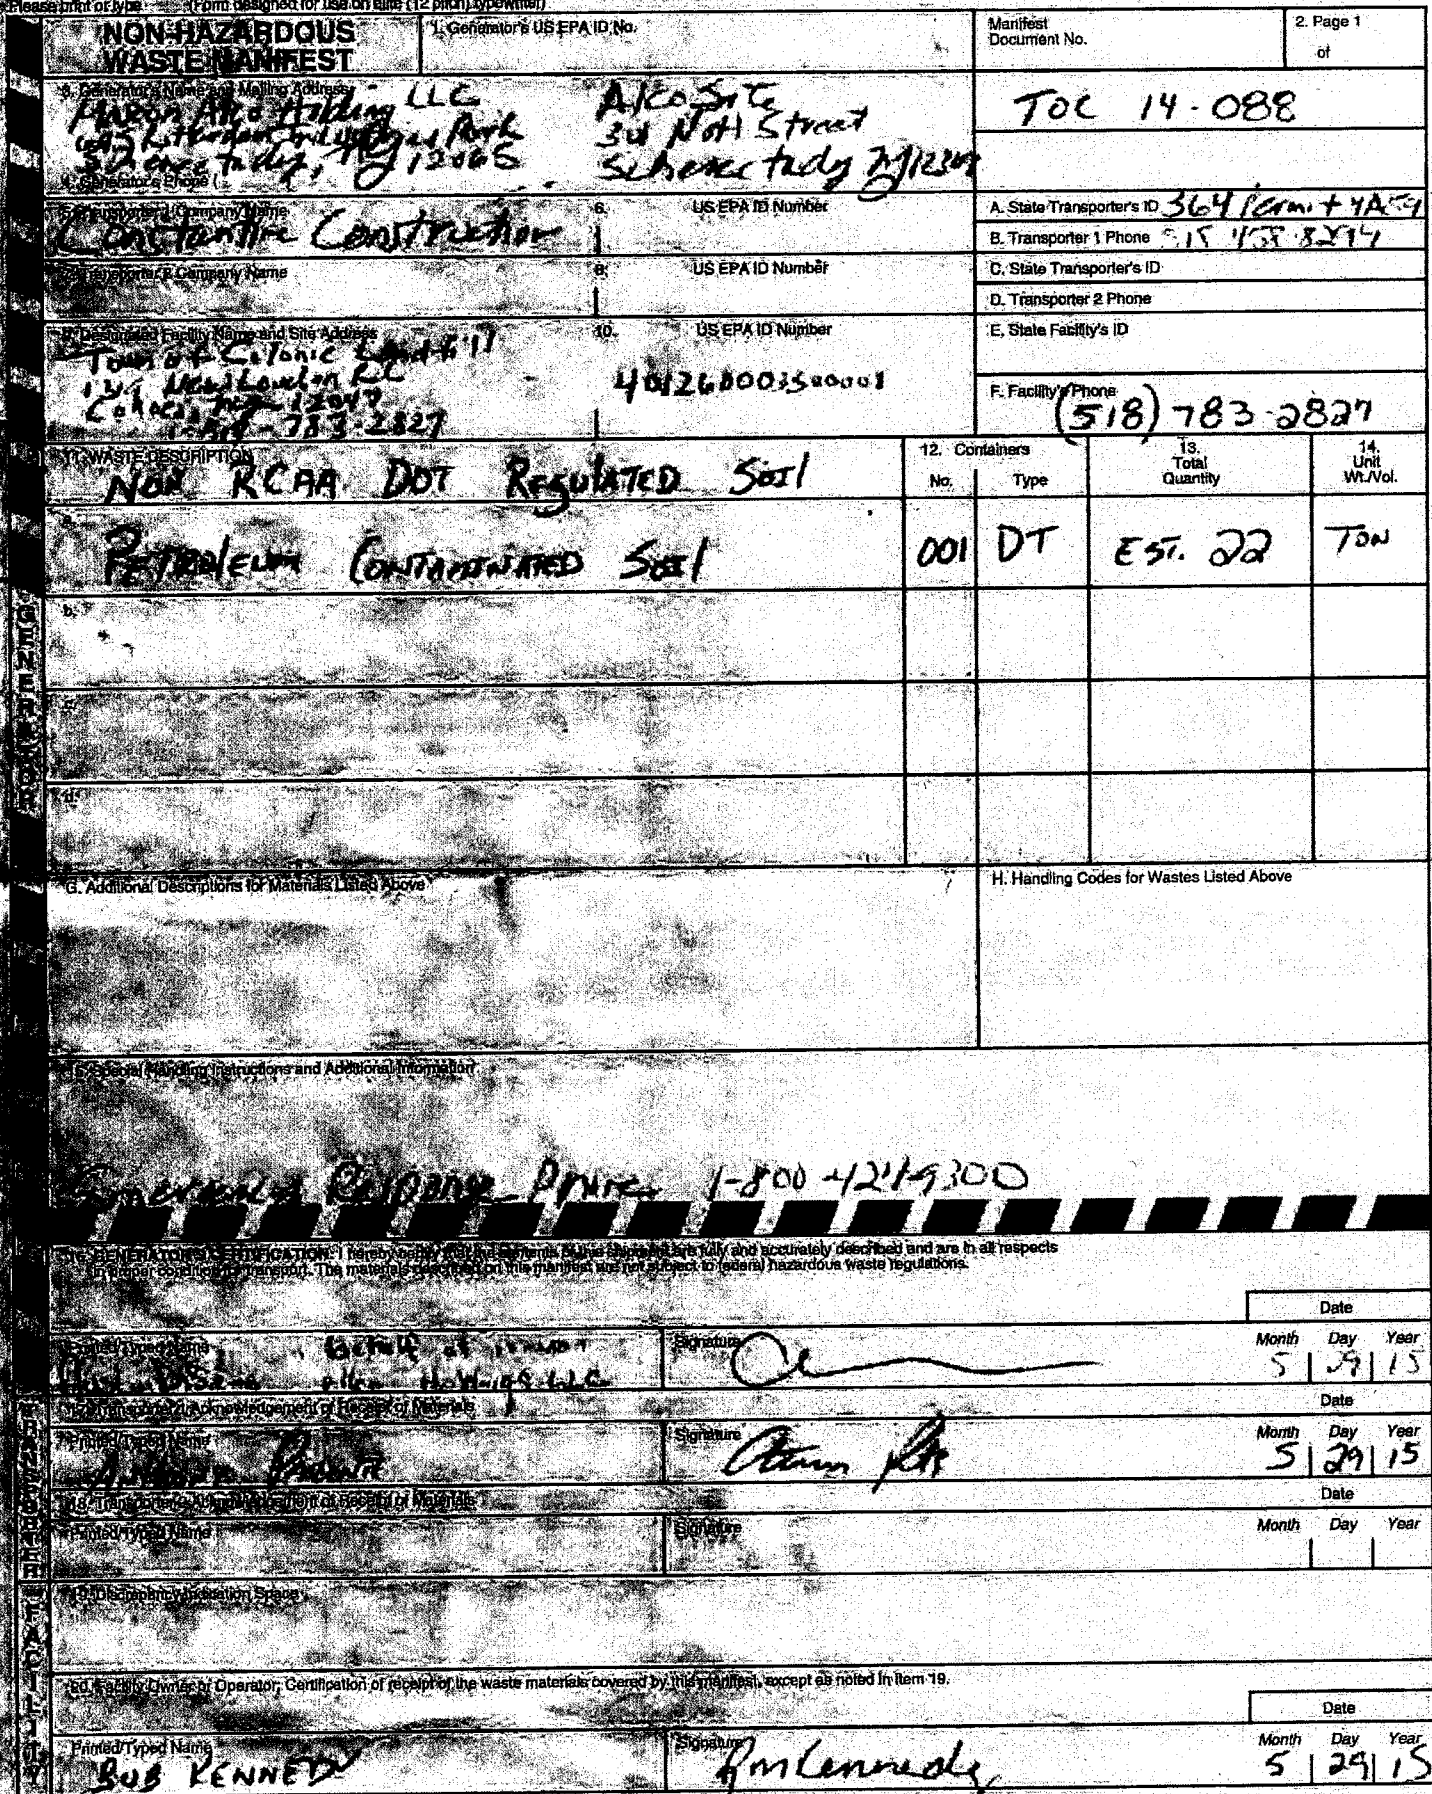 Please print or type. (Form designed for use on elite (12 pitch) typewriter)
NON-HAZARDOUS
WASTE MANIFEST
1. Generator's US EPA ID No.
Manifest
Document No.
2. Page 1
of
3. Generator's Name and Mailing Address
LLC
Schenectady, NY 12065
Alco Site
301 Nott Street
Schenectady NY
TOC 14-088
4. Generator's Phone (
5. Transporter 1 Company Name
Constantine Construction
6. US EPA ID Number
A. State Transporter's ID 364 Permit
B. Transporter 1 Phone
7. Transporter 2 Company Name
8. US EPA ID Number
C. State Transporter's ID
D. Transporter 2 Phone
9. Designated Facility Name and Site Address
Town of Colonie
New Loudon Rd
Cohoes, 12047
783-2827
10. US EPA ID Number
E. State Facility's ID
F. Facility's Phone
(518) 783-2827
11. WASTE DESCRIPTION
NON RCRA DOT REGULATED SOIL
12. Containers
No.
Type
13.
Total
Quantity
14.
Unit
Wt./Vol.
a.
PETROLEUM CONTAMINATED SOIL
001
DT
EST. 22
TON
b.
c.
d.
G. Additional Descriptions for Materials Listed Above
H. Handling Codes for Wastes Listed Above
15. Special Handling Instructions and Additional Information
Emergency Response 1-800-424-9300
GENERATOR
16. GENERATOR'S CERTIFICATION: I hereby certify that the contents of this shipment are fully and accurately described and are in all respects
in proper condition for transport. The materials described on this manifest are not subject to federal hazardous waste regulations.
Date
Printed/Typed Name
behalf of
Holdings LLC
Signature
Month Day Year
5 29 15
17. Transporter 1 Acknowledgement of Receipt of Materials
Date
Printed/Typed Name
Signature
Month Day Year
5 29 15
18. Transporter 2 Acknowledgement of Receipt of Materials
Date
Printed/Typed Name
Signature
Month Day Year
TRANSPORTER
19. Discrepancy Indication Space
20. Facility Owner or Operator; Certification of receipt of the waste materials covered by this manifest, except as noted in item 19.
Date
Printed/Typed Name
BOB KENNEDY
Signature
Month Day Year
5 29 15
FACILITY